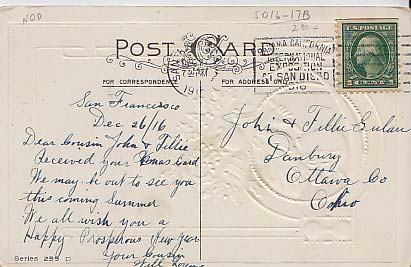 NOD
5016-17B
POST CARD
FOR CORRESPONDENCE
SAN
730 PM
191
PANAMA CALIFORNIA
INTERNATIONAL
EXPOSITION
AT SAN DIEGO
1916
U.S. POSTAGE
San Francesco
Dec 26/16
Dear Cousin John & Tillie
Received your Xmas Card
We may be out to see you
this coming Summer
We all wish you a
Happy- Prosperous New Year
Your Cousin
Will
John & Tillie Lulau
Danbury
Ottawa Co
Ohio
Series 255 D